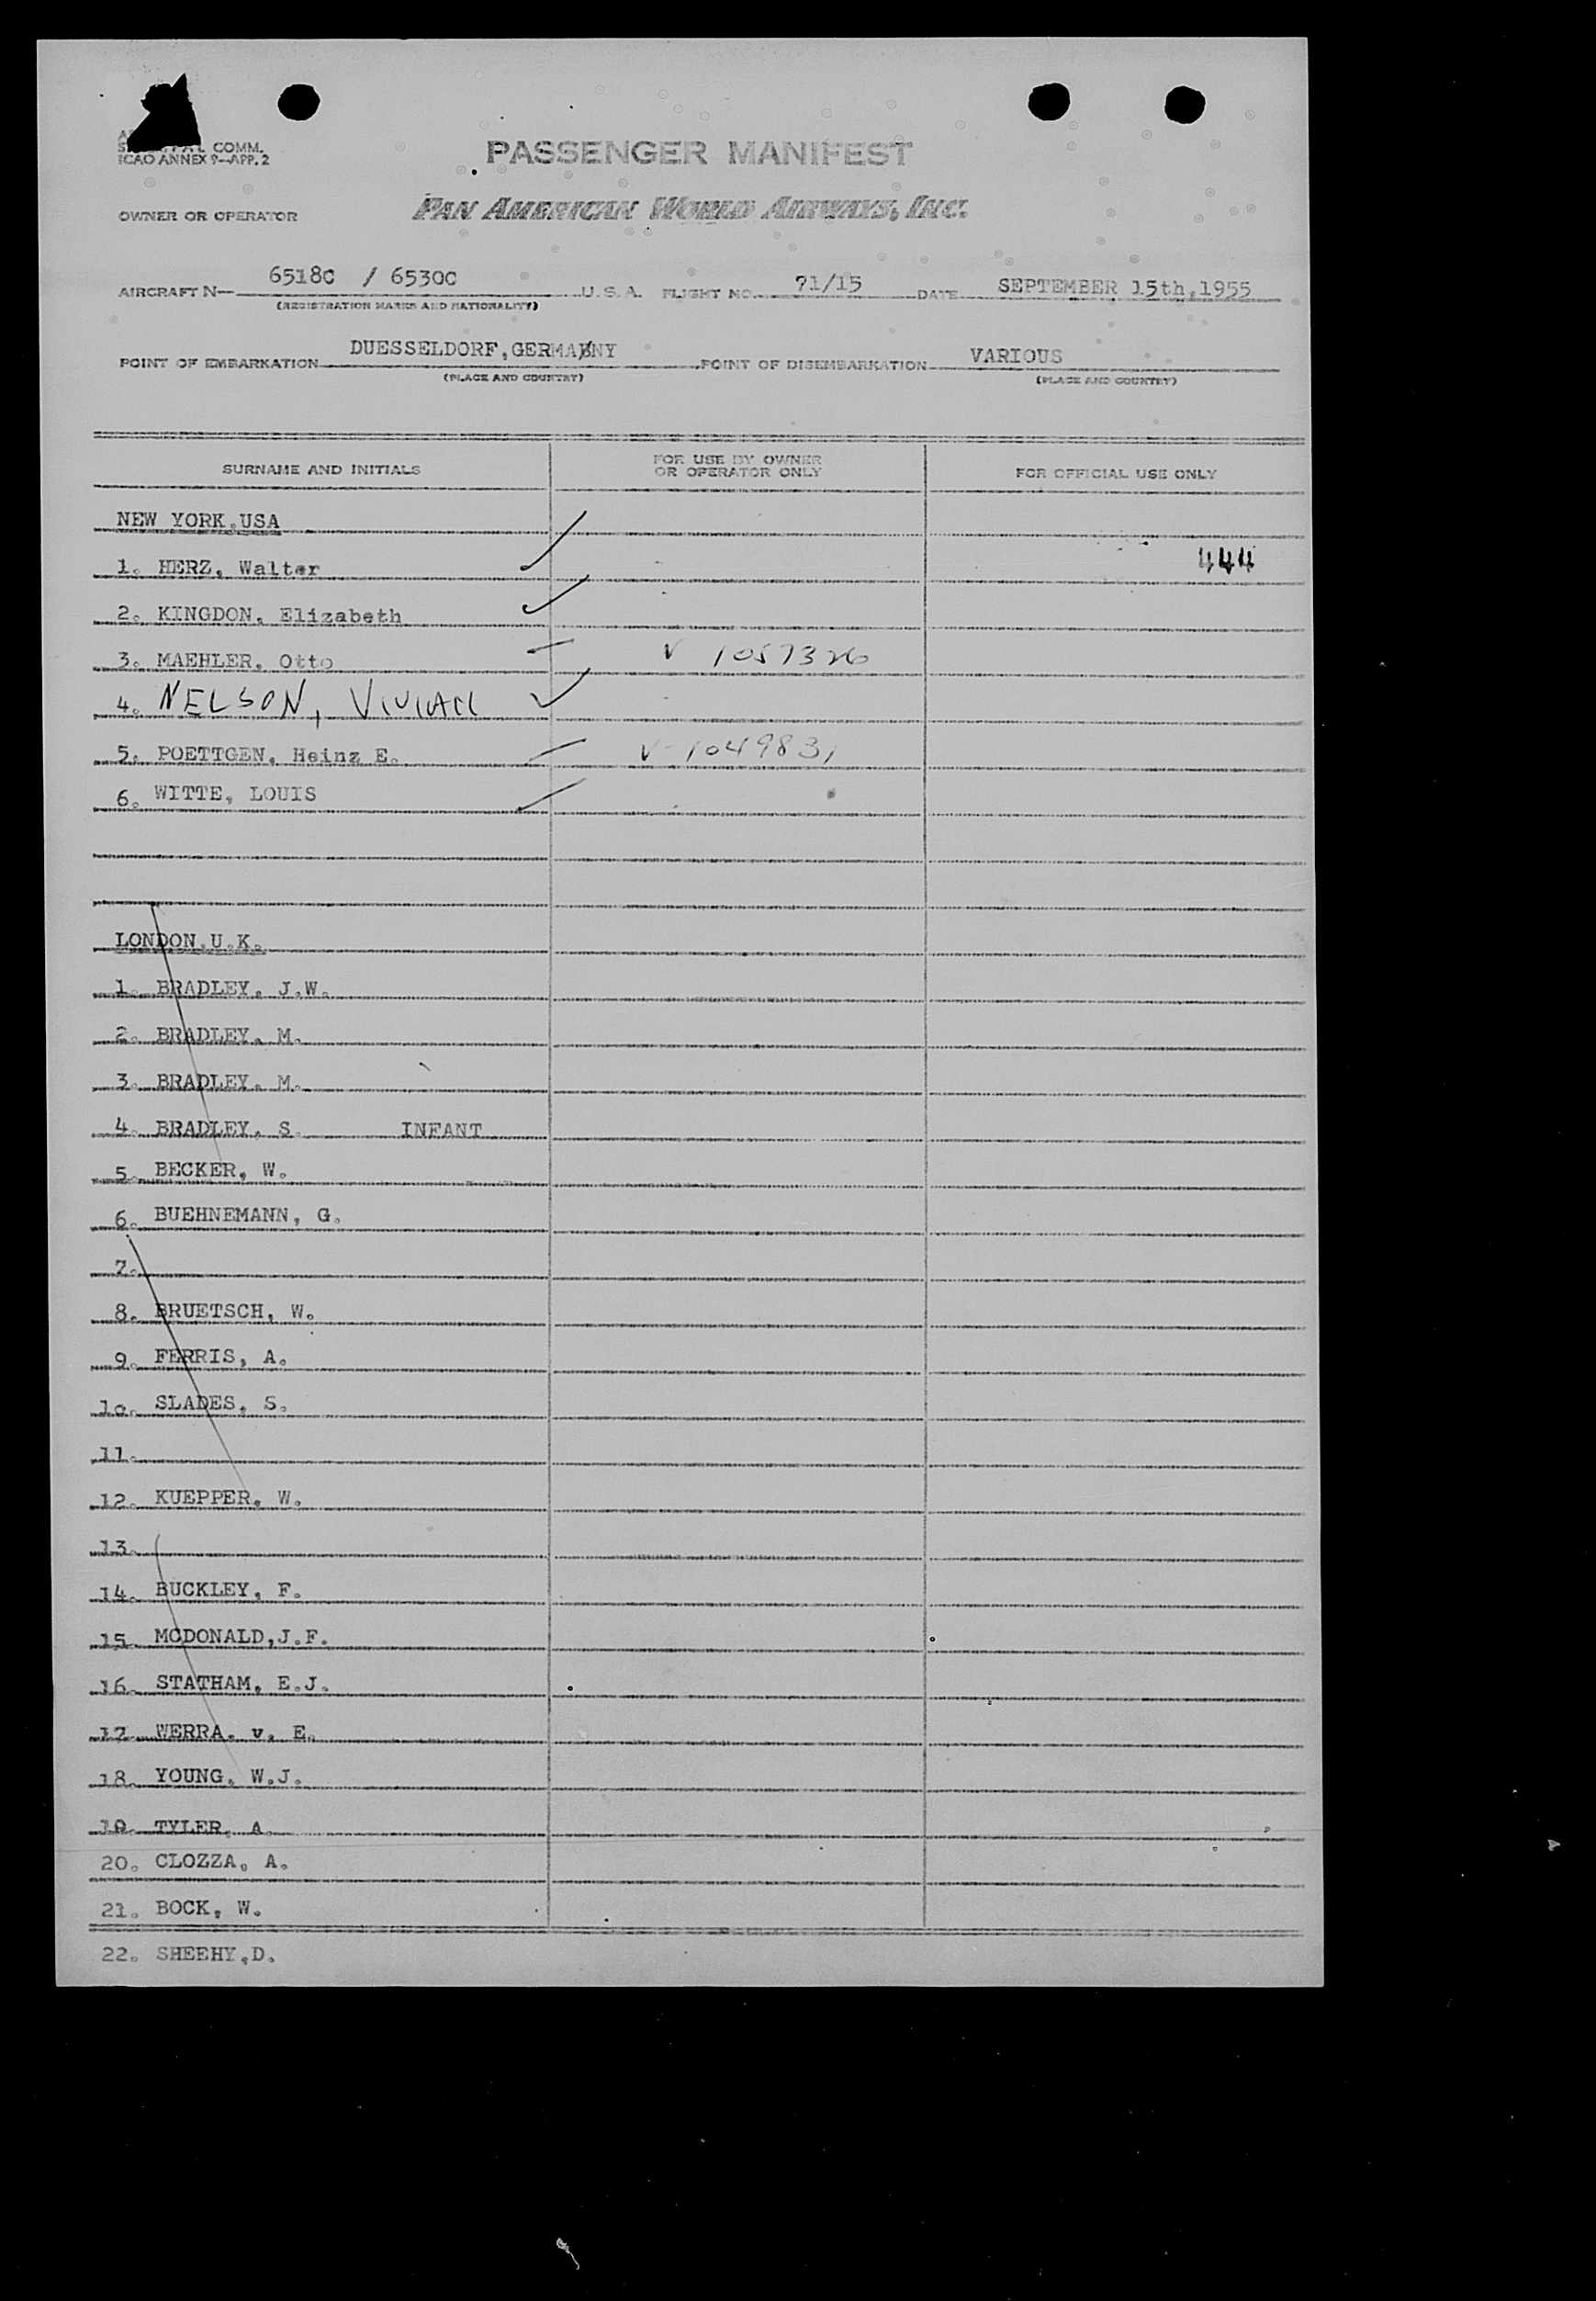 COMM.
ICAO ANNEX 9—APP. 2
PASSENGER MANIFEST
OWNER OR OPERATOR PAN AMERICAN WORLD AIRWAYS, INC.
AIRCRAFT N— 6518C / 6530C U. S. A. FLIGHT NO. 71/15 DATE SEPTEMBER 15th,1955
(REGISTRATION MARKS AND NATIONALITY)
POINT OF EMBARKATION DUESSELDORF,GERMANY POINT OF DISEMBARKATION VARIOUS
(PLACE AND COUNTRY) (PLACE AND COUNTRY)
SURNAME AND INITIALS FOR USE BY OWNER OR OPERATOR ONLY FOR OFFICIAL USE ONLY
NEW YORK,USA
1. HERZ, Walter 444
2. KINGDON, Elizabeth
3. MAEHLER, Otto V 1057326
4. NELSON, VIVIAN
5. POETTGEN, Heinz E. V-1049831
6. WITTE, LOUIS
LONDON,U.K.
1. BRADLEY, J.W.
2. BRADLEY, M.
3. BRADLEY, M.
4. BRADLEY, S. INFANT
5. BECKER, W.
6. BUEHNEMANN, G.
7.
8. BRUETSCH, W.
9. FERRIS, A.
10. SLADES, S.
11.
12. KUEPPER, W.
13.
14. BUCKLEY, F.
15. MCDONALD,J.F.
16. STATHAM, E.J.
17. WERRA, v. E.
18. YOUNG, W.J.
19. TYLER, A.
20. CLOZZA, A.
21. BOCK, W.
22. SHEEHY,D.